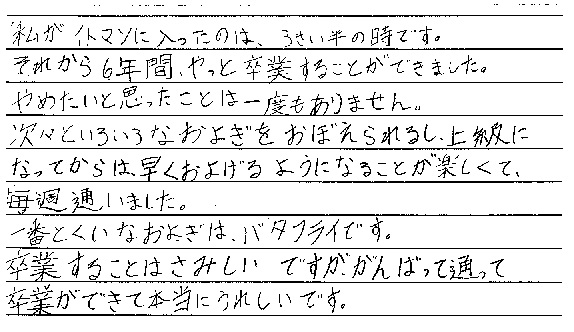 私がイトマンに入ったのは、3さい半の時です。
それから6年間、やっと卒業することができました。
やめたいと思ったことは一度もありません。
次々といろいろなおよぎをおぼえられるし、上級に
なってからは、早くおよげるようになることが楽しくて、
毎週通いました。
一番とくいなおよぎは、バタフライです。
卒業することはさみしいですが、がんばって通って
卒業ができて本当にうれしいです。